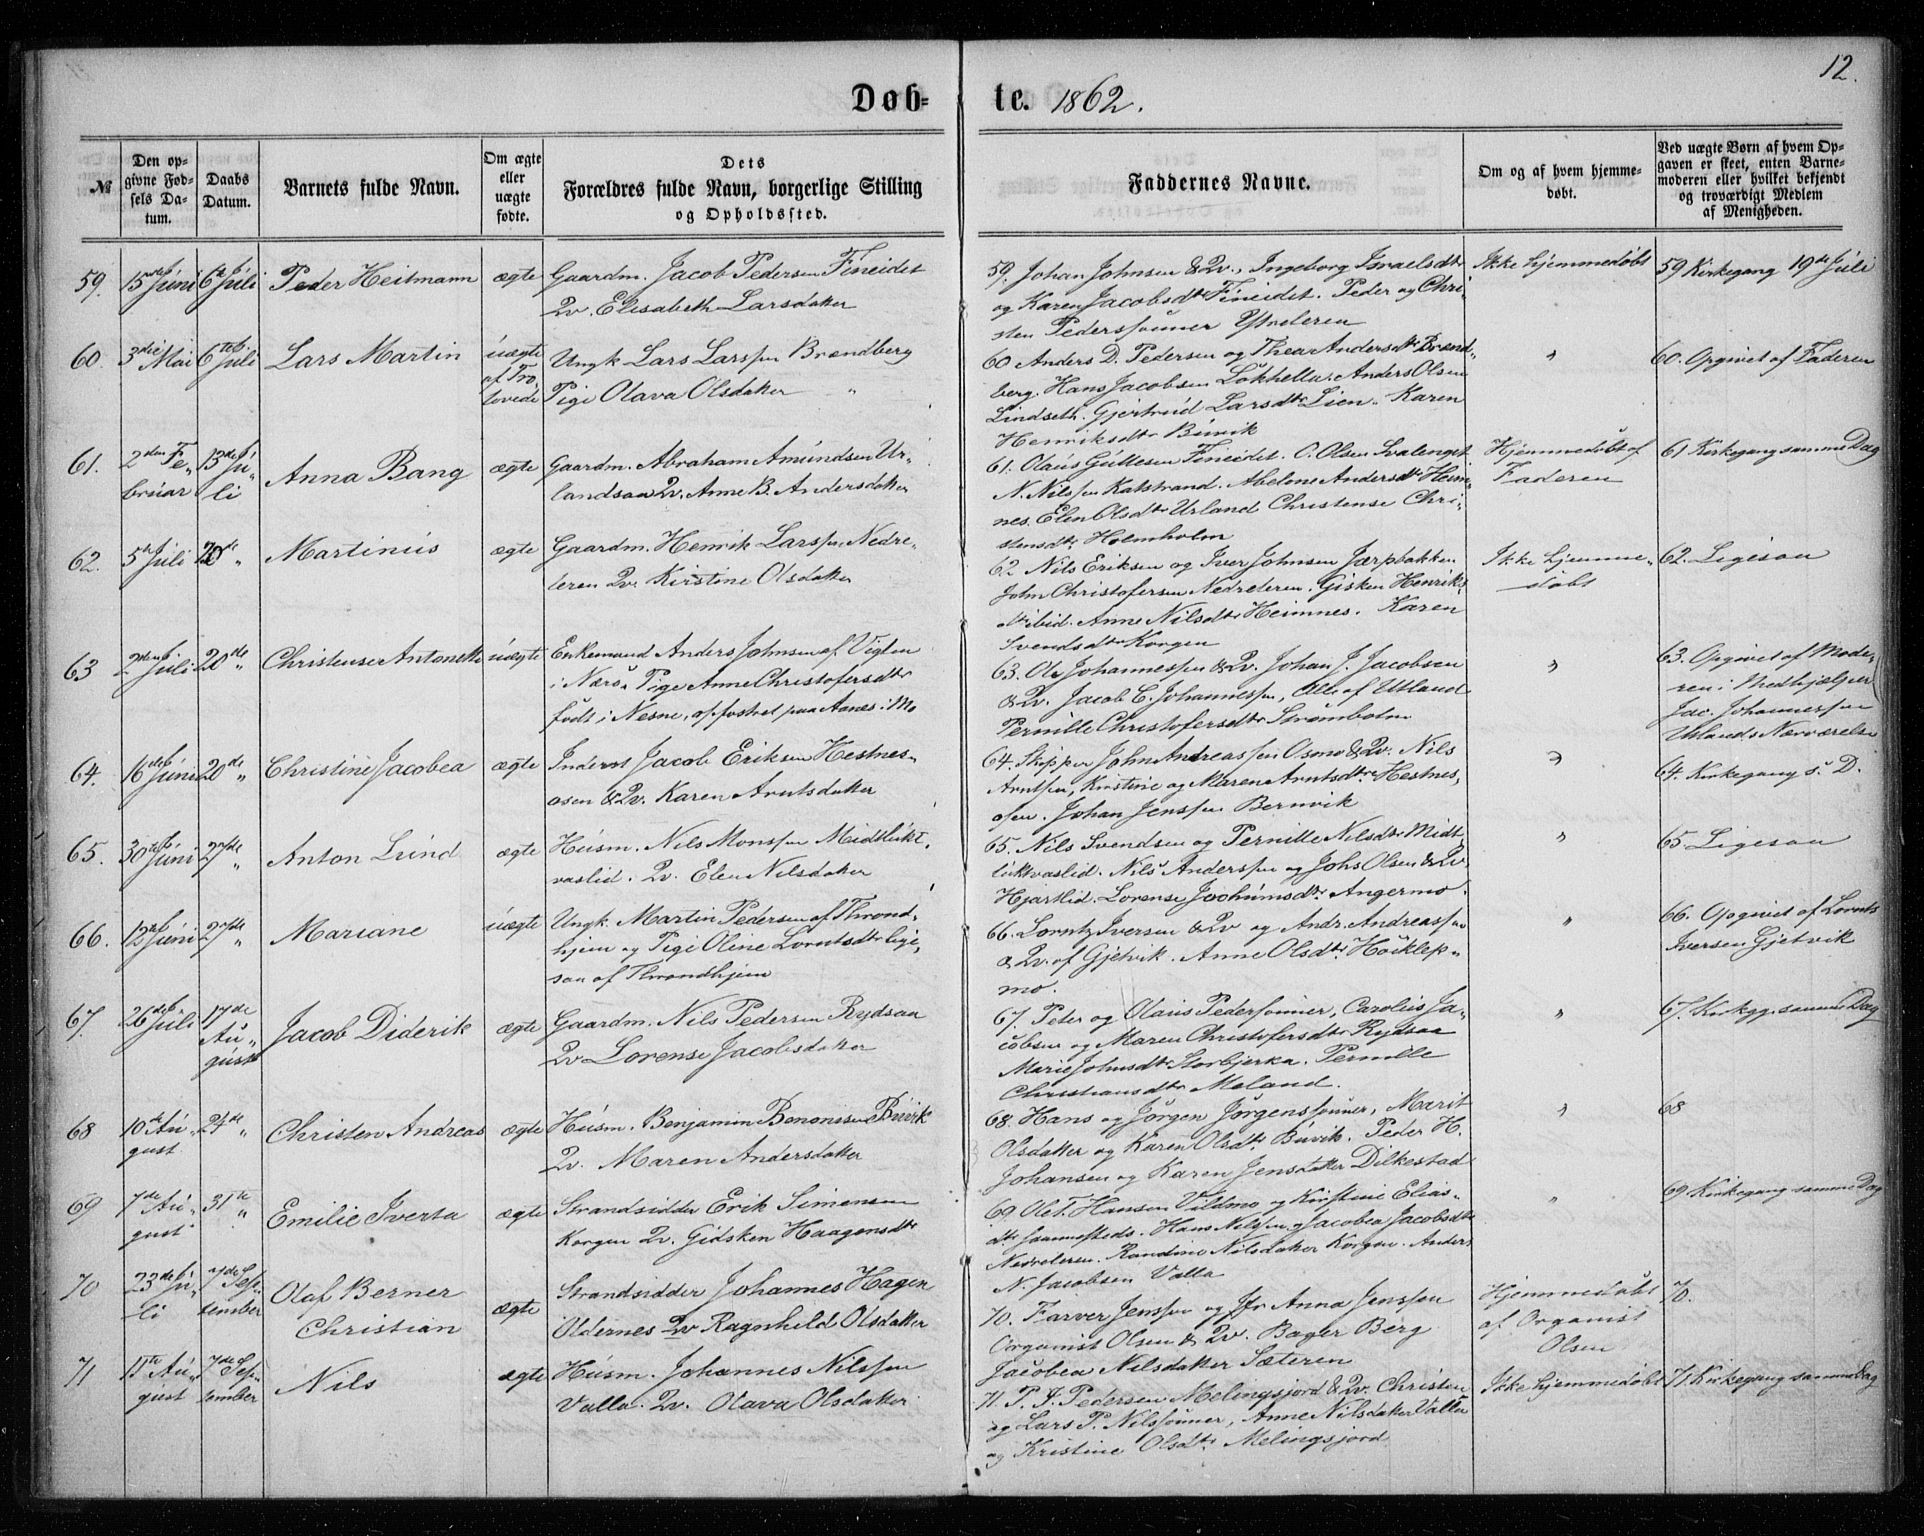 12.
Døb- te. 1862.
№
Den op-
givne Fød-
sels Da-
tum.
Daabs
Datum.
Barnets fulde Navn.
Om ægte
eller
uægte
fødte.
Dets
Forældres fulde Navn, borgerlige Stilling
og Opholdssted.
Faddernes Navne.
Om og af hvem hjemme-
døbt.
Ved uægte Børn af hvem Op-
gaven er skeet, enten Barne-
moderen eller hvilket bekjendt
og troværdigt Medlem
af Menigheden.
59. 15de Júni 6te Júli Peder Heitmann ægte Gaardm. Jacob Pedersen Fineidet
Qv. Elisabeth Larsdatter
59. Johan Johnsen & Qv., Ingeborg Israelsdtr
og Karen Jacobsdtr Fineidet. Peder og Chri-
sten Pederssønner Ytreleren
Ikke hjemmedøbt
59 Kirkegang 19de Júli
60. 3die Mai 6te Júli Lars Martin úægte
af Tro-
lovede
Ungk. Lars Larssen Brendberg
Pige Olava Olsdatter "
60 Anders D. Pedersen og Thea Andersdtr Brænd-
berg. Hans Jacobsen Løkhella. Anders Olsen
Lindseth. Gjertrúd Larsdtr Lien. Karen
Henriksdtr Búvik
"
60. Opgivet af Faderen
61. 2den Fe-
brúar
13de Jú-
li
Anna Bang ægte Gaardm. Abraham Amúndsen Ur-
landsaa Qv. Anne B. Andersdatter
61. Olaús Gúttesen Fineidet. O. Olsen Svalenget
N. Nilssen Katstrand. Abelone Andersdtr Heim-
nes. Elen Olsdtr Urland Christense Chri-
stensdtr Holmholm
Hjemmedøbt af
Faderen
61 Kirkegang samme Dag
62. 5te Júli 20de " Martinús ægte Gaardm. Henrik Larssen Nedre-
leren Qv. Kirstine Olsdatter
62 Nils Eriksen og Iver Johnsen Jærpbakken
John Christofersen Nedreleren. Gisken Henriks-
dtr ibid. Anne Nilsdtr Heimnes. Karen
Svendsdtr Korgen
Ikke hjemme-
døbt
62. Ligesaa
63 2den Júli 20de " Christense Antonette úægte Enkemand Anders Johnsen af Vigten
i Nærø. Pige Anne Christofersdtr
født i Nesne, opfostret paa Aanes i Mo
63. Ole Johannessen & Qv. Johan J. Jacobsen
& Qv. Jacob C. Johannessen, Alle af Utland
Pernille Christofersdtr Strømbolm
"
63. Opgivet af Mode-
ren i Medhjælper
Jac. Johannessen
Utlands Nærværelse
64. 16de Júni 20de " Christine Jacobea ægte Inderst Jacob Eriksen Hestnes-
osen & Qv. Karen Arntsdatter
64. Skipper John Andreassen Osmo & Qv. Nils
Arntsen, Kirstine og Maren Arntsdtr Hestnes-
osen. Johan Jenssen Bernvik
"
64. Kirkegang s. D.
65. 30te Júni 27de " Anton Lúnd ægte Húsm. Nils Monssen Midtlúkt-
vaslid. Qv. Elen Nilsdatter
65. Nils Svendsen og Pernille Nilsdtr Midt-
lúktvaslid. Nils Anderssen og Johs Olsen & Qv.
Hjartlid. Lorense Jochúmsdtr Angermo.
"
65 Ligesaa
66. 12te Júni 27de " Mariane úægte Ungk. Martin Pedersen af Thrond-
hjem og Pige Oline Lorntsdtr lige-
saa af Throndhjem
66. Lorntz Iversen & Qv og Andr. Andreassen
& Qv. af Gjetvik. Anne Olsdtr Høiklep-
mo.
"
66. Opgivet af Lornts
Iversen Gjetvik
67. 26de Júli 17de
Aú-
gúst
Jacob Diderik ægte Gaardm. Nils Pedersen Rydsaa
Qv Lorense Jacobsdatter
67. Peter og Olaús Pederssønner, Carolius Ja-
cobsen og Maren Christofersdtr Rydsaa
Marie Johnsdtr Storbjerka. Pernille
Christiansdtr Moland.
"
67. Kirkgg. samme Dag
68 10de Aú-
gust
24de " Christen Andreas ægte Húsm. Benjamin Benonisen Búvik
Qv. Maren Andersdatter
68. Hans og Jørgen Jørgenssønner, Marit
Olsdatter og Karen Olsdtr Búvik. Peder H.
Johansen og Karen Jensdatter Dilkestad
"
68
69 7de Aú-
gust
31te " Emilie Iverta ægte Strandsidder Erik Simensen
Korgen Qv. Gidsken Haagensdtr
69 Ole T. Hansen Vildmo og Kirstine Elias-
dtr sammesteds. Hans Nilssen og Jacobea Jacobsdtr
Nedreleren. Randine Nilsdatter Korgen. Anders
N. Jacobsen Valla
"
69 Kirkegang samme Dag
70 23de Jú-
li
7de Sep-
tember
Olaf Berner
Christian
ægte Strandsidder Johannes Hagen
Oldernes Qv Ragnhild Olsdatter
70. Farver Jenssen og Jfr Anna Jenssen
Organist Olsen & Qv. Bager Berg
Jacobea Nilsdatter Sæteren
Hjemmedøbt
af Organist
Olsen
70.
71 11te Aú-
gust
7de Sep-
tember
Nils ægte Húsm. Johannes Nilssen
Valla. Qv. Olava Olsdatter
71. P. J. Pedersen Melingsjord & Qv. Christen
og Lars P. Nilssønner, Anne Nilsdatter Valla
og Kristine Olsdtr Melingsjord
Ikke hjemmedøbt
71. Kirkegang samme Dag